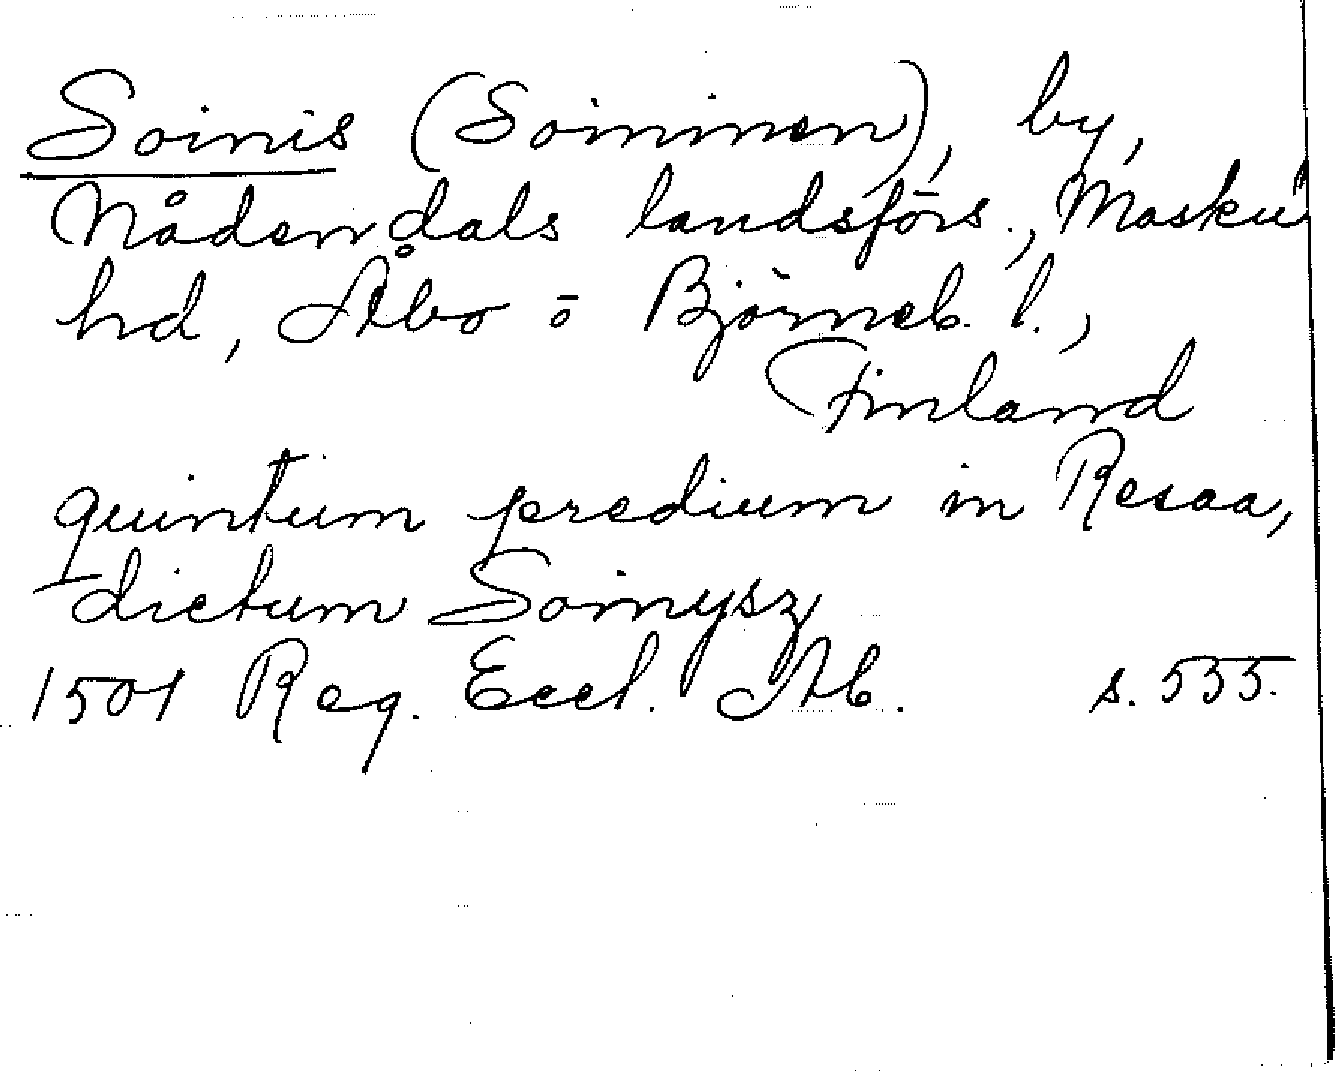 Soinis (Soininen), by,
Nådendals landsförs., Masku
hd, Åbo o Björneb. l.,
Finland
quintum predium in Resaa,
dictum Soinysz
1501 Reg. Eccl. Ab. s. 535.